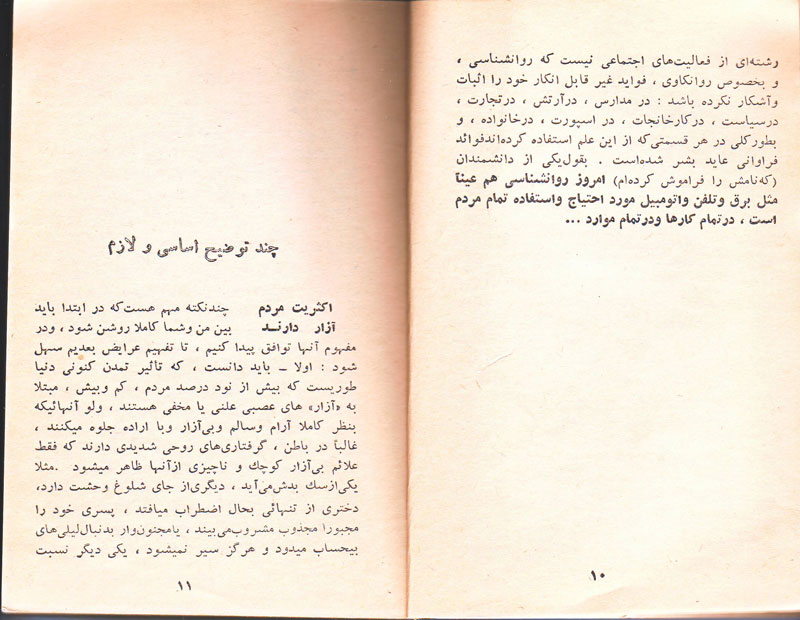 رشته‌ای از فعالیت‌های اجتماعی نیست که روانشناسی ،
و بخصوص روانکاوی ، فواید غیر قابل انکار خود را اثبات
وآشکار نکرده باشد : در مدارس ، درآرتش ، درتجارت ،
درسیاست ، درکارخانجات ، در اسپورت ، درخانواده ، و
بطورکلی در هر قسمتی‌که از این علم استفاده کرده‌اندفوائد
فراوانی عاید بشر شده‌است . بقول‌یکی از دانشمندان
(که‌نامش را فراموش کرده‌ام) امروز روانشناسی هم عیناً
مثل برق وتلفن واتومبیل مورد احتیاج واستفاده تمام مردم
است ، درتمام کارها ودرتمام موارد ...
۱۰
چند توضیح اساسی و لازم
اکثریت مردم چندنکته مهم هست‌که در ابتدا باید
آزار دارنـد بین من وشما کاملا روشن شود ، ودر
مفهوم آنها توافق پیدا کنیم ، تا تفهیم عرایض بعدیم سهل
شود : اولا ــ باید دانست ، که تأثیر تمدن کنونی دنیا
طوریست که بیش از نود درصد مردم ، کم وبیش ، مبتلا
به «آزار» های عصبی علنی یا مخفی هستند ، ولو آنهائیکه
بنظر کاملا آرام وسالم وبی‌آزار وبا اراده جلوه میکنند ،
غالباً در باطن ، گرفتاری‌های روحی شدیدی دارند که فقط
علائم بی‌آزار کوچك و ناچیزی ازآنها ظاهر میشود .مثلا
یکی‌ازسك بدش‌می‌آید ، دیگری‌از جای شلوغ وحشت دارد،
دختری از تنهائی بحال اضطراب میافتد ، پسری خود را
مجبورا مجذوب مشروب‌می‌بیند ، یامجنون‌وار بدنبال‌لیلی‌های
بیحساب میدود و هرگز سیر نمیشود ، یکی دیگر نسبت
۱۱